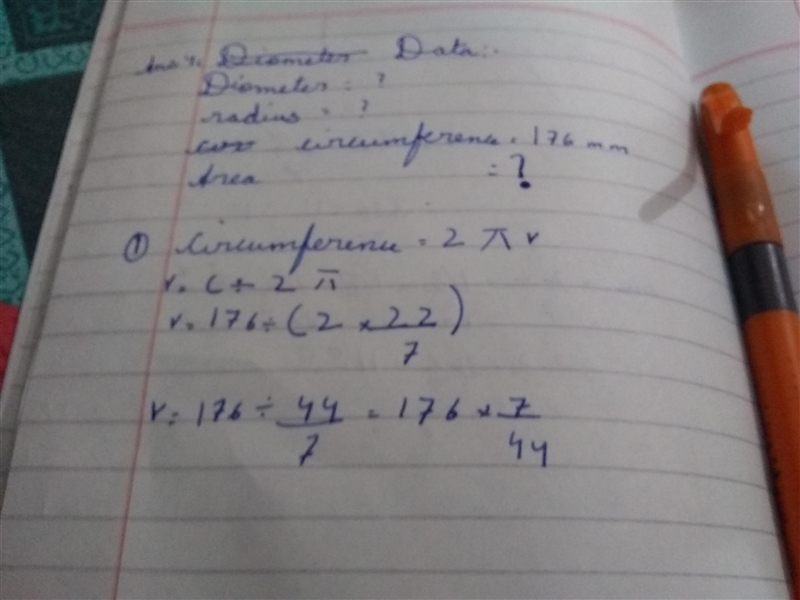 Ans 1. Diometer Data:-
Diometer = ?
radius = ?
cir circumference = 176 mm
Area = ?
① Circumference = 2 π r
r = C ÷ 2 π
r = 176 ÷ (2 × 22/7)
r = 176 ÷ 44/7 = 176 × 7/44